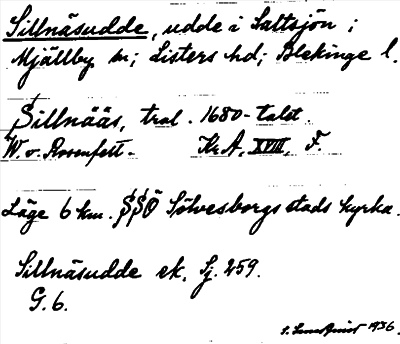 Sillnäsudde, udde i Saltsjön i
Mjällby sn; Listers hd; Blekinge l.
Sillnääs, trol. 1680-talet.
W. v. Rosenfelt. Kr. A. XVIII, F.
Läge 6 km. SSÖ Sölvesborgs stads kyrka.
Sillnäsudde ek. Sj. 259.
G. 6.
1936.